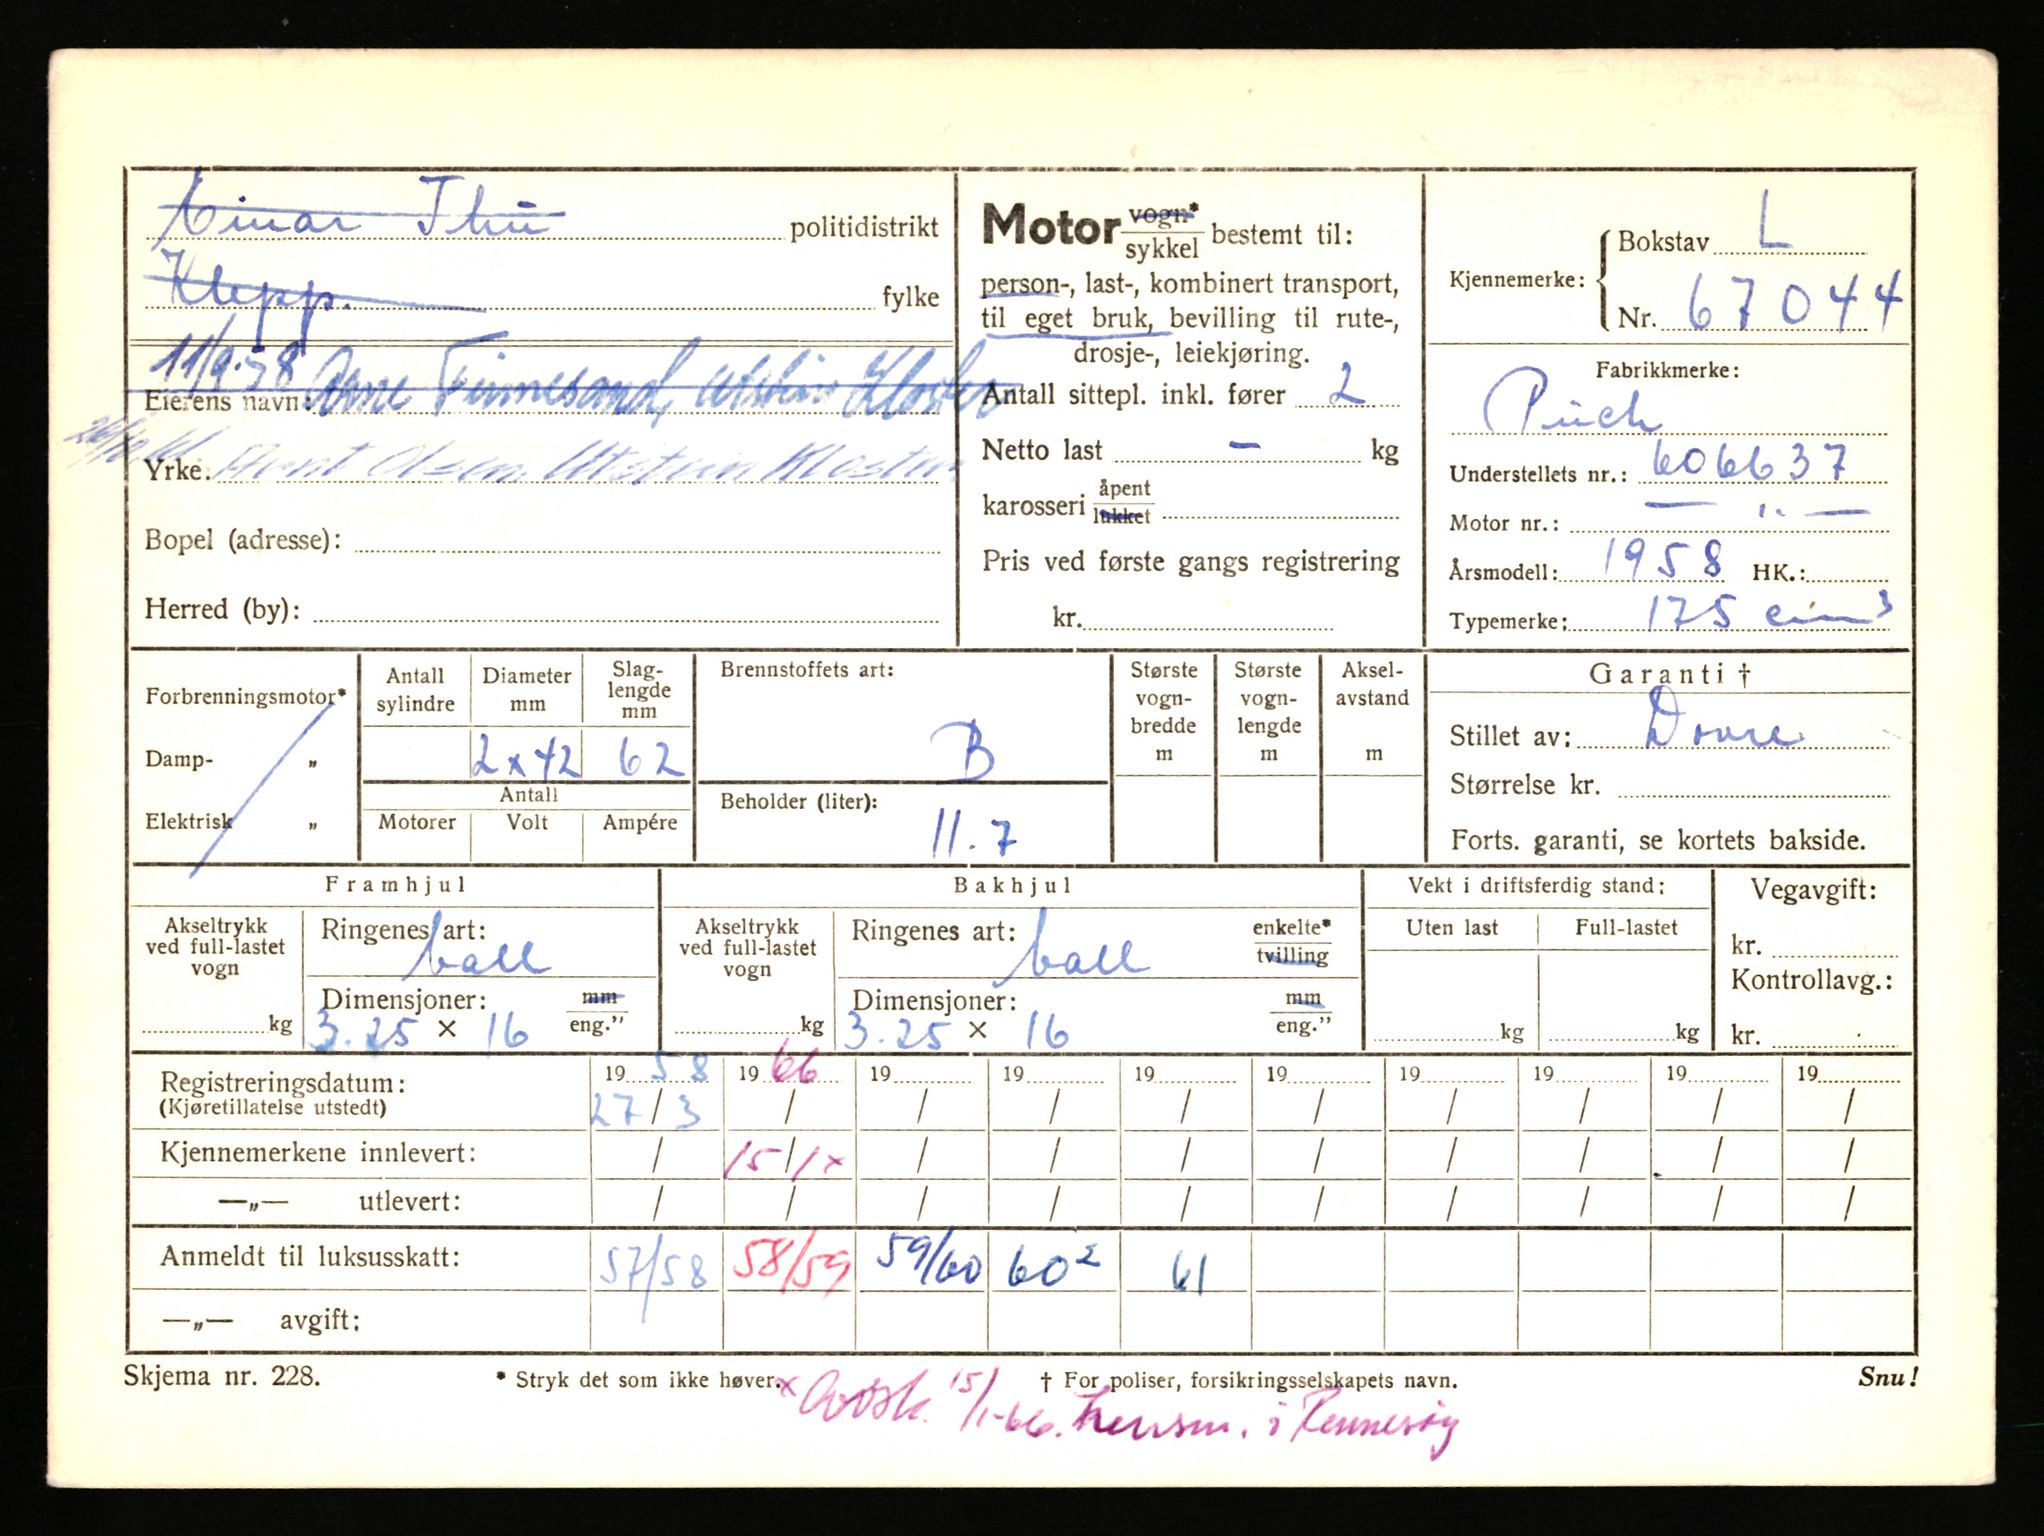 Einar Thu politidistrikt
Klepp. fylke
11/9-58 Arne Finnesand, Utstein Kloster
Eierens navn:
Yrke. Arnt Olsen Utstein Kloster
Bopel (adresse):
Herred (by):
Motor vogn* / sykkel bestemt til:
person-, last-, kombinert transport,
til eget bruk, bevilling til rute-,
drosje-, leiekjøring.
Antall sittepl. inkl. fører 2
Netto last – kg
karosseri åpent / lukket
Pris ved første gangs registrering
kr.
Kjennemerke: Bokstav L
Nr. 67044
Fabrikkmerke:
Puch
Understellets nr.: 606637
Motor nr.: — " —
Årsmodell: 1958 HK.:
Typemerke: 175 cm³
Forbrenningsmotor*
Damp- „
Elektrisk „
Antall sylindre
Diameter mm
Slag-lengde mm
2x42 62
Antall
Motorer Volt Ampére
Brennstoffets art:
B
Beholder (liter):
11.7
Største vogn-bredde m
Største vogn-lengde m
Aksel-avstand m
Garanti †
Stillet av: Dovre
Størrelse kr.
Forts. garanti, se kortets bakside.
Framhjul
Akseltrykk ved full-lastet vogn
kg
Ringenes art:
ball
Dimensjoner: mm / eng.”
3.25 × 16
Bakhjul
Akseltrykk ved full-lastet vogn
kg
Ringenes art: enkelte* / tvilling
ball
Dimensjoner: mm / eng.”
3.25 × 16
Vekt i driftsferdig stand:
Uten last Full-lastet
kg kg
Vegavgift:
kr.
Kontrollavg.:
kr.
19 58 19 66 19 19 19 19 19 19 19 19
Registreringsdatum:
(Kjøretillatelse utstedt) 27/3 / / / / / / / / /
Kjennemerkene innlevert: / 15/1x / / / / / / / /
—„— utlevert: / / / / / / / / / /
Anmeldt til luksusskatt: 57/58 58/59 59/60 60² 61
—„— avgift:
Skjema nr. 228. * Stryk det som ikke høver. † For poliser, forsikringsselskapets navn. Snu!
x Avsk. 15/1-66. Lensm. i Rennesøy